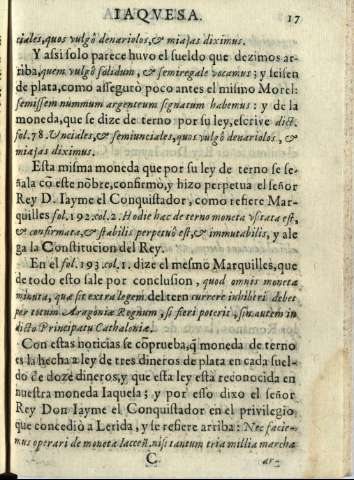 IAQVESA. 17
ciales, quos vulgò denariolos, & miajas diximus.
Y assi solo parece huvo el sueldo que dezimos ar-
riba, quem vulgò solidum, & semiregale vocamus; y seisen
de plata, como asseguró poco antes el mismo Morel:
semissem nummum argenteum signatum habemus: y de la
moneda, que se dize de terno por su ley, escrive dict.
fol. 78. Vnciales, & semiunciales, quos vulgò denariolos, &
miajas diximus.
Esta misma moneda que por su ley de terno se se-
ñala cō este nōbre, confirmò, y hizo perpetua el señor
Rey D. Iayme el Conquistador, como refiere Mar-
quilles fol. 192. col. 2. Hodie hac de terno moneta vsitata est,
& confirmata, & stabilis perpetuò est, & immutabilis, y ale
ga la Constitucion del Rey.
En el fol. 193. col. 1. dize el mesmo Marquilles, que
de todo esto sale por conclusion, quod omnis moneta
minuta, quæ sit extra legem del tern currere inhiberi debet
per totum Aragoniæ Regnum, si fieri poterit, sin autem in
dicto Principatu Cathaloniæ.
Con estas noticias se cōprueba, q̃ moneda de terno
es la hecha a ley de tres dineros de plata en cada suel-
do de doze dineros, y que esta ley està reconocida en
nuestra moneda Iaquesa; y por esso dixo el señor
Rey Don Iayme el Conquistador en el privilegio
que concediò a Lerida, y se refiere arriba: Nec facie-
mus operari de moneta Iaccēsi, nisi tantum tria millia marcha
C ar-